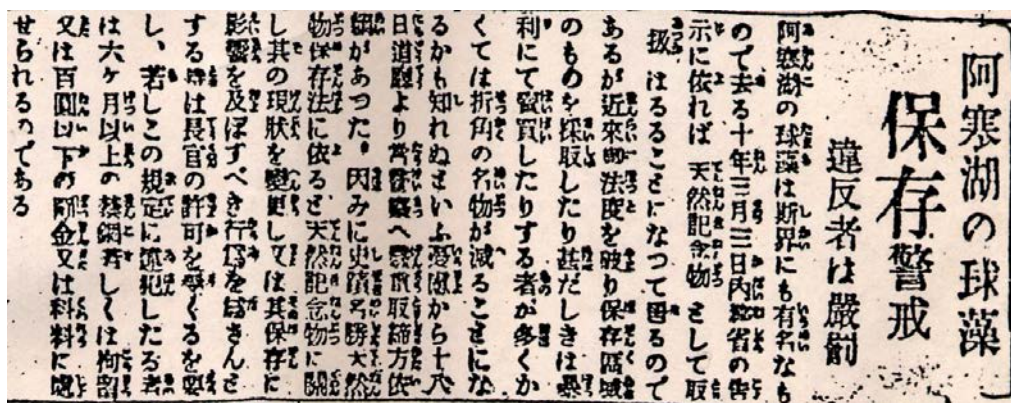 阿寒湖の球藻
保存警戒
違反者は嚴罰
阿寒湖の球藻は斯界にも有名なも
ので去る十年三月三日内務省の告
示に依れば 天然記念物 として取
扱 はるることになつて居るので
あるが近來御法度を破り保存區域
のものを採取したり甚だしきは暴
利にて賣買したりする者が多くか
くては折角の名物が減ることにな
るかも知れぬといふ憂慮から十八
日道廳より當警察へ嚴重取締方依
頼があつた。因みに史蹟名勝天然
物保存法に依ると天然記念物に關
し其の現狀を變更し又は其保存に
影響を及ぼすべき行爲を爲さんと
する時は長官の許可を受くるを要
し、若しこの規定に違犯したる者
は六ヶ月以上の禁錮若しくは拘留
又は百圓以下の罰金又は科料に處
せられるのである